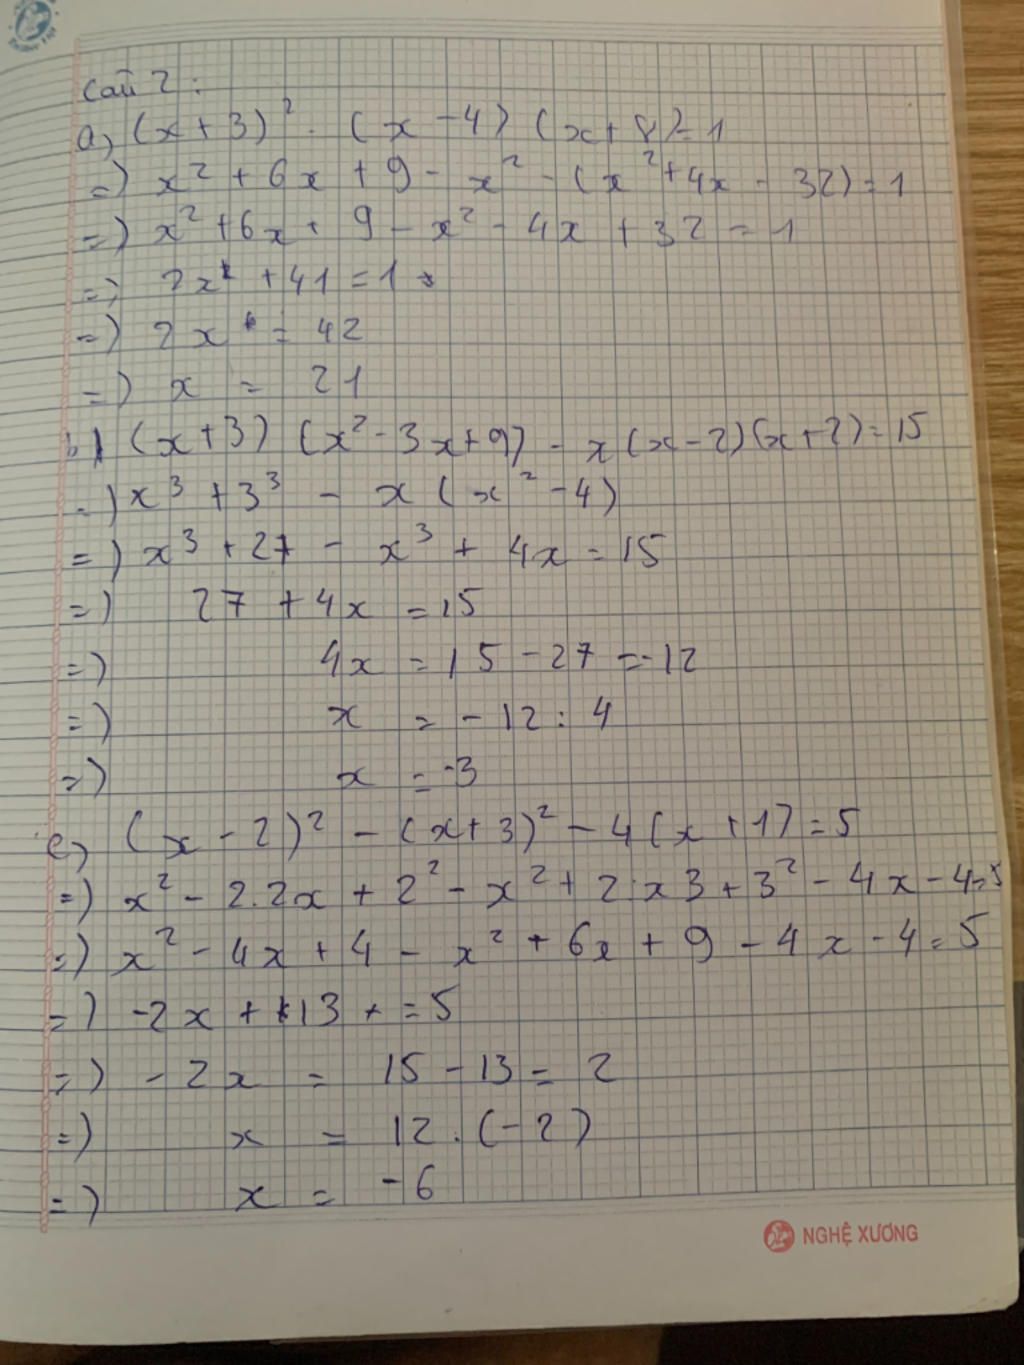 Câu 2:
a) (x+3)² - (x-4)(x+8)=1
=) x² + 6x + 9 - x² - (x²+4x - 32) = 1
=) x² +6x + 9 - x² - 4x + 32 = 1
=) 2x + 41 = 1
=) 2x = 42
=) x = 21
b) (x+3) (x²-3x+9) - x(x-2)(x+2)=15
=) x³ + 3³ - x (x² - 4)
=) x³ + 27 - x³ + 4x = 15
=) 27 + 4x = 15
=) 4x = 15 - 27 = -12
=) x = - 12 : 4
=) x = -3
c) (x - 2)² - (x+3)² - 4(x+1) = 5
=) x² - 2.2x + 2² - x² + 2.x3 + 3² - 4x - 4=5
=) x² - 4x + 4 - x² + 6x + 9 - 4x - 4 = 5
=) -2x + 13 + = 5
=) - 2x = 15 - 13 = 2
=) x = 12 . (-2)
=) x = -6
NGHỆ XƯƠNG